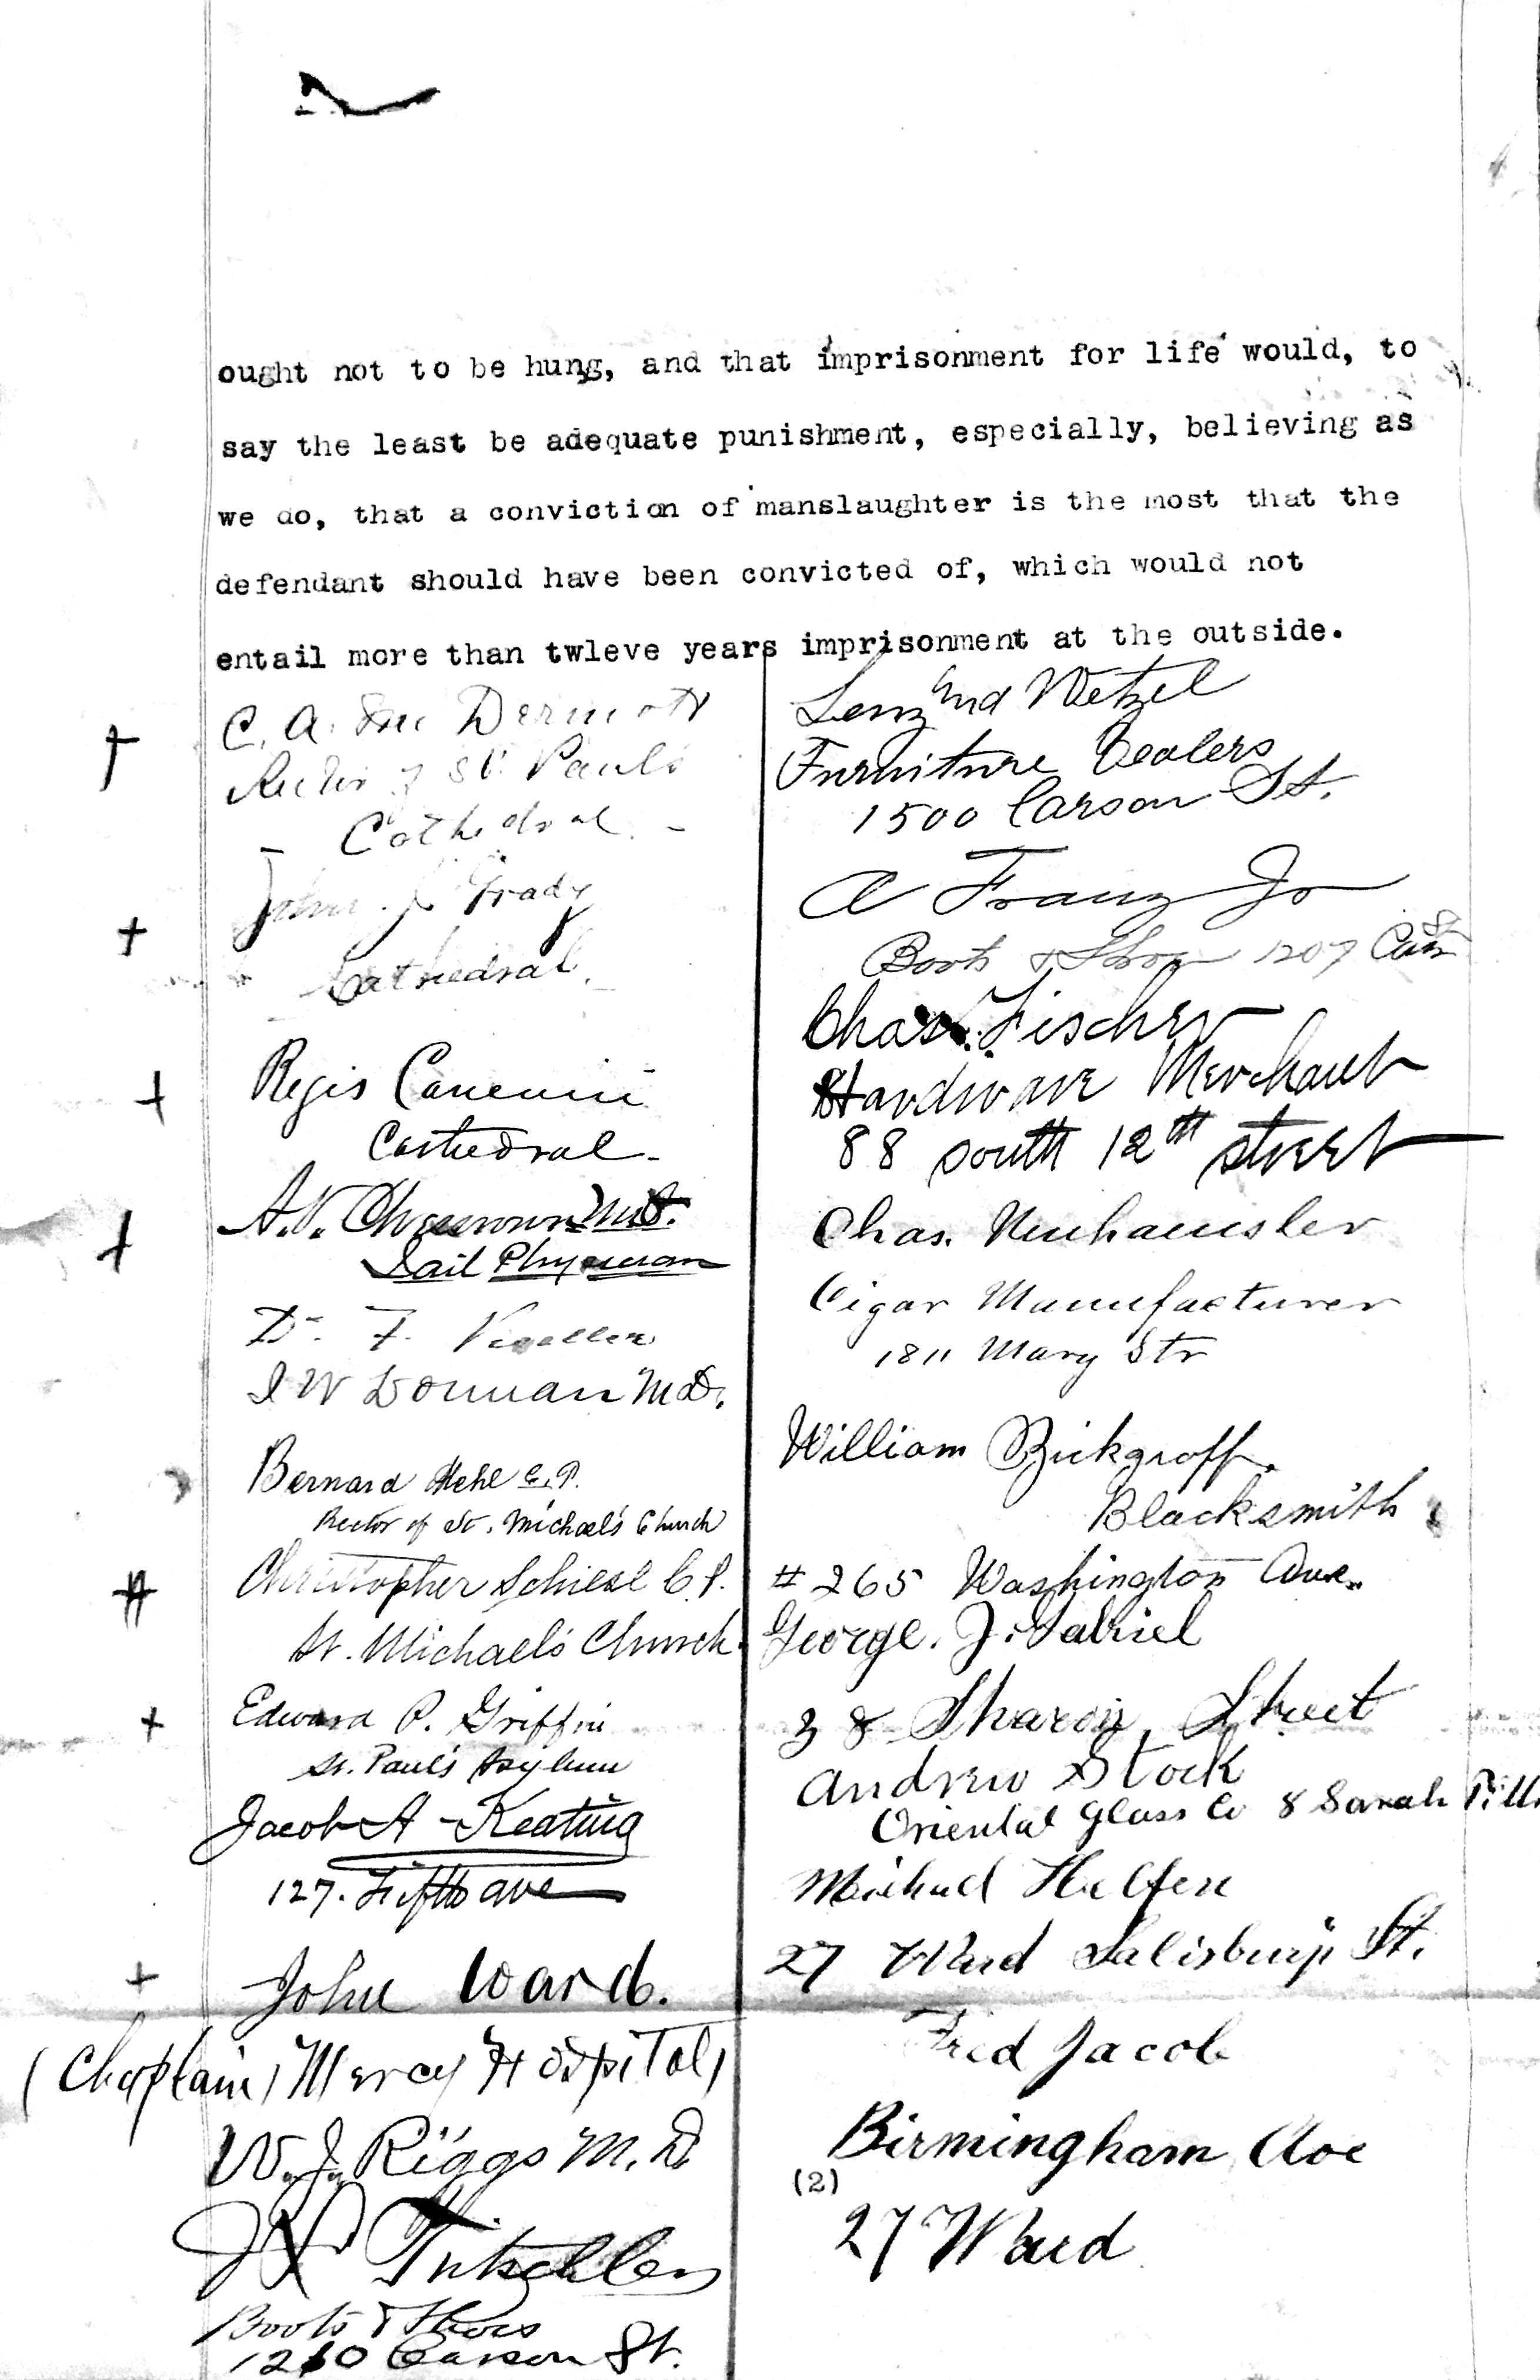 ought not to be hung, and that imprisonment for life would, to
say the least be adequate punishment, especially, believing as
we do, that a conviction of manslaughter is the most that the
defendant should have been convicted of, which would not
entail more than twleve years imprisonment at the outside.
C. A. Mc Dermott
Rector of St. Paul's
Cathedral.
John J. Grady
Cathedral.
Regis Canevin
Cathedral.
A. V. M.D.
Jail Physician
Dr. F.
J W Dorman M.D.
Bernard Hehl C.P.
Rector of St. Michael's Church
Christopher Schiesl C.P.
St. Michael's Church
Edward P. Griffin
St. Paul's Asylum
Jacob A Keating
127. Fifth ave
John Ward.
(Chaplain, Mercy Hospital)
W. J. Riggs M.D.
Boots & Shoes
1210 Carson St.
Lenz and Wetzel
Furniture Dealers
1500 Carson St.
A Franz Jr
Boots & Shoes 1207 Cars St
Chas. Fischer
Hardware Merchant
88 south 12th street
Chas. Neuhaeusler
Cigar Manufacturer
1811 Mary Str
William
Blacksmith
# 265 Washington Ave.
George. J. Gabriel
38 Sharon Street
Andrew Stock
Oriental Glass Co & Sarah
Michael Helfen
27 Ward Salisbury St.
Fred Jacob
Birmingham Ave
(2)
27 Ward